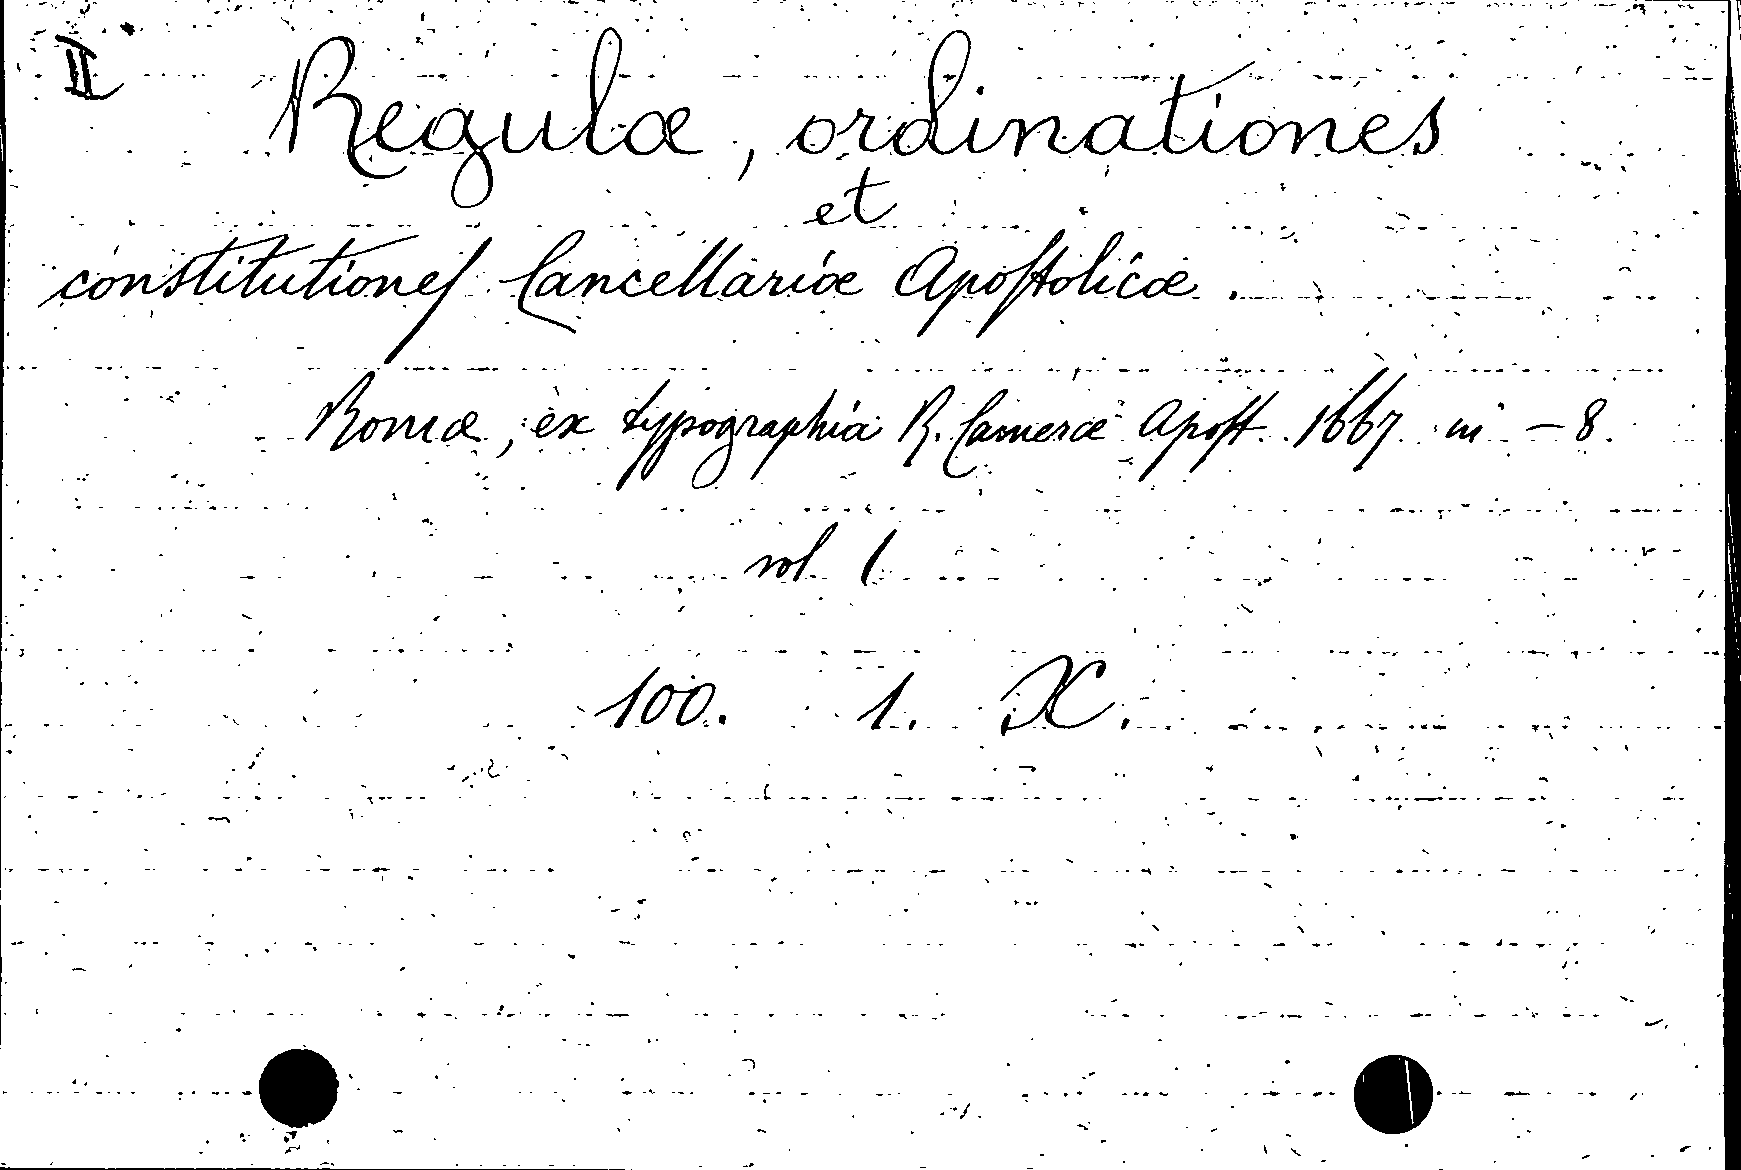 II
Regulæ, ordinationes
et
constitutiones Cancellariæ Apostolicæ.
Romæ, ex typographia R. Cameræ Apost. 1667 in - 8.
vol 1
100. 1. X.